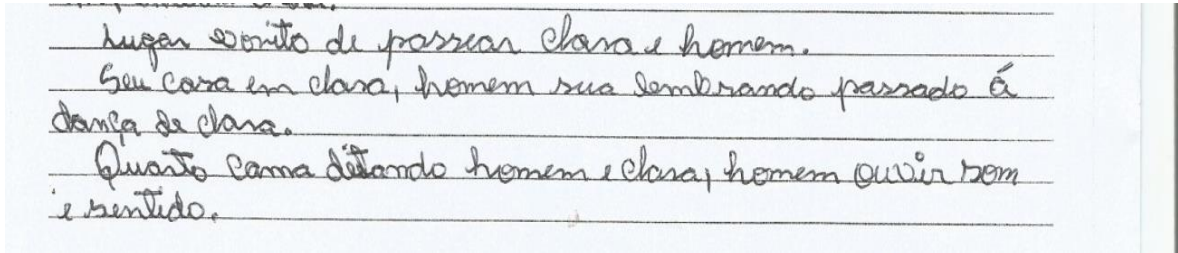 Lugar bonito de passear clara e homem.
Seu casa em clara, homem sua lembrando passado á
dança de clara.
Quarto cama ditando homem e clara, homem ouvir som
e sentido.